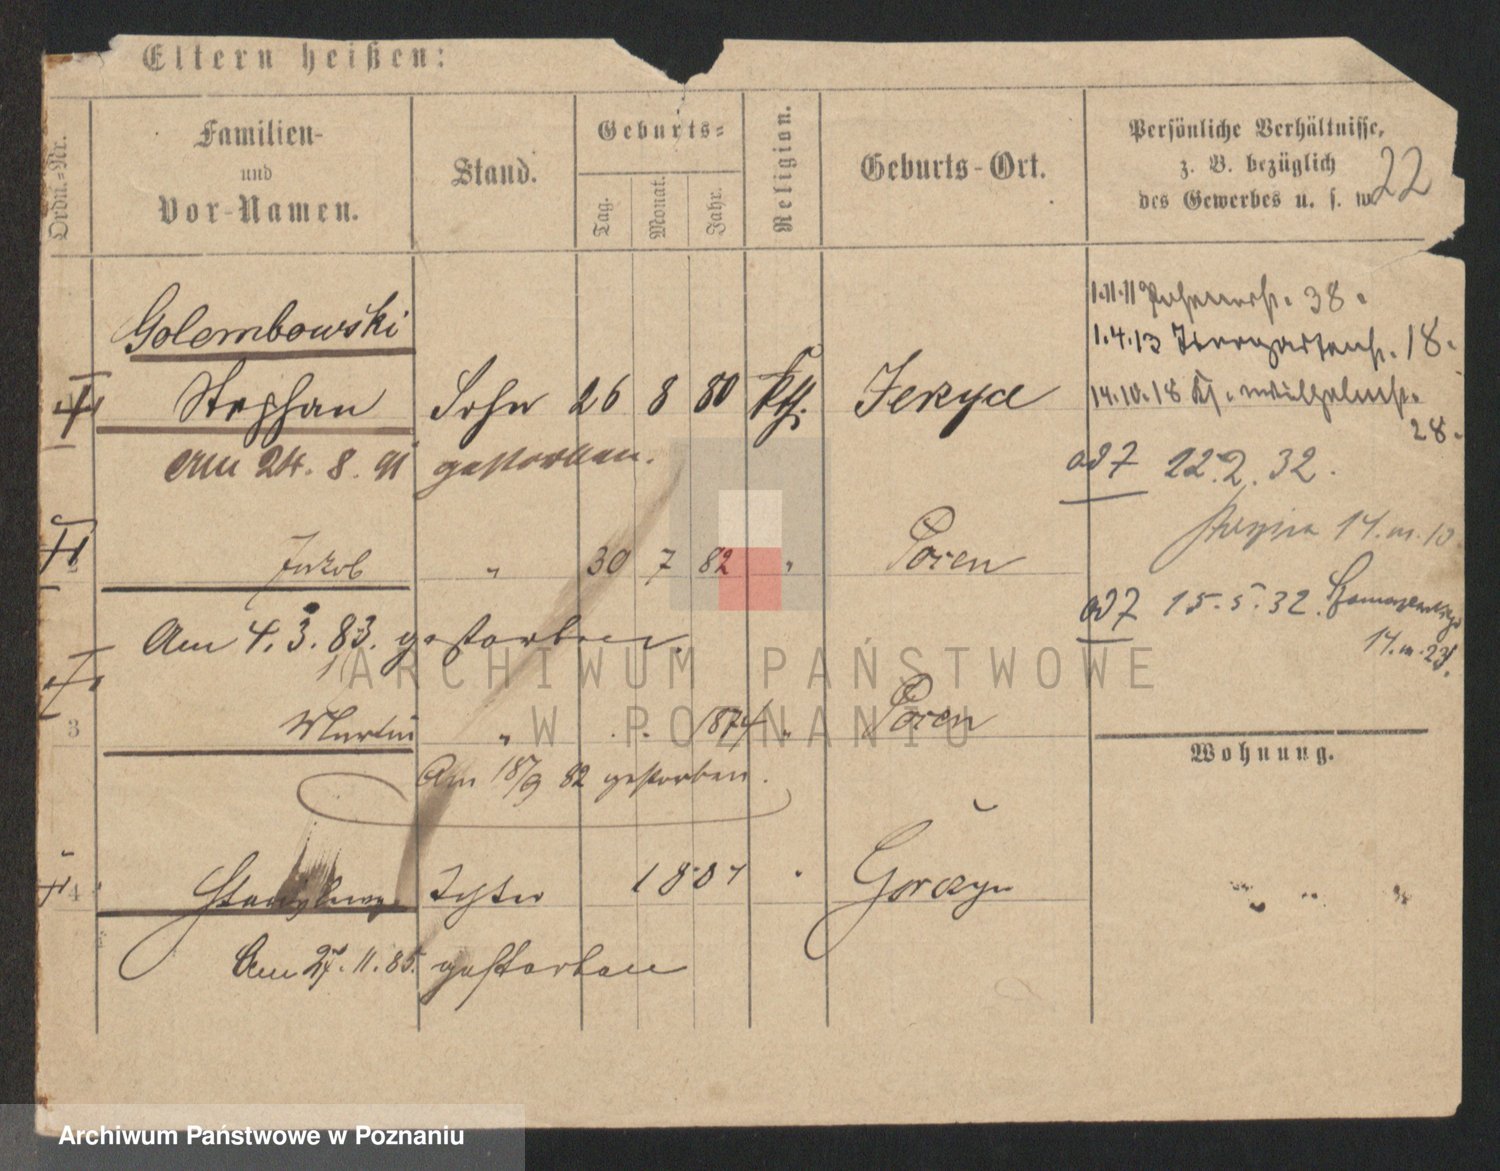 Eltern heißen:
Ordn.-Nr.
Familien-
und
Vor-Namen.
Stand.
Geburts-
Tag.
Monat.
Jahr.
Religion.
Geburts-Ort.
Persönliche Verhältnisse,
z. B. bezüglich
des Gewerbes u. s. w.
22
Golembowski
1.11.11 38.
1.4.13 Tiergartenst. 18.
Stephan Sohn 26 8 80 kth. Jerzyce
14.10.18 K. Wilhelmst.
28.
Am 24. 8. 91 gestorben.
od 7 22.2.32.
14.III.10
2 Jakob " 30 7 82 " Posen
od 7 15.5.32.
Am 4.3.83. gestorben.
ARCHIWUM PAŃSTWOWE
W POZNANIU
3 Martin " 1874 " Posen
Wohnung.
Am 18/9 82 gestorben.
4 Tochter Gorczyn
Am 27.11.85. gestorben
Archiwum Państwowe w Poznaniu